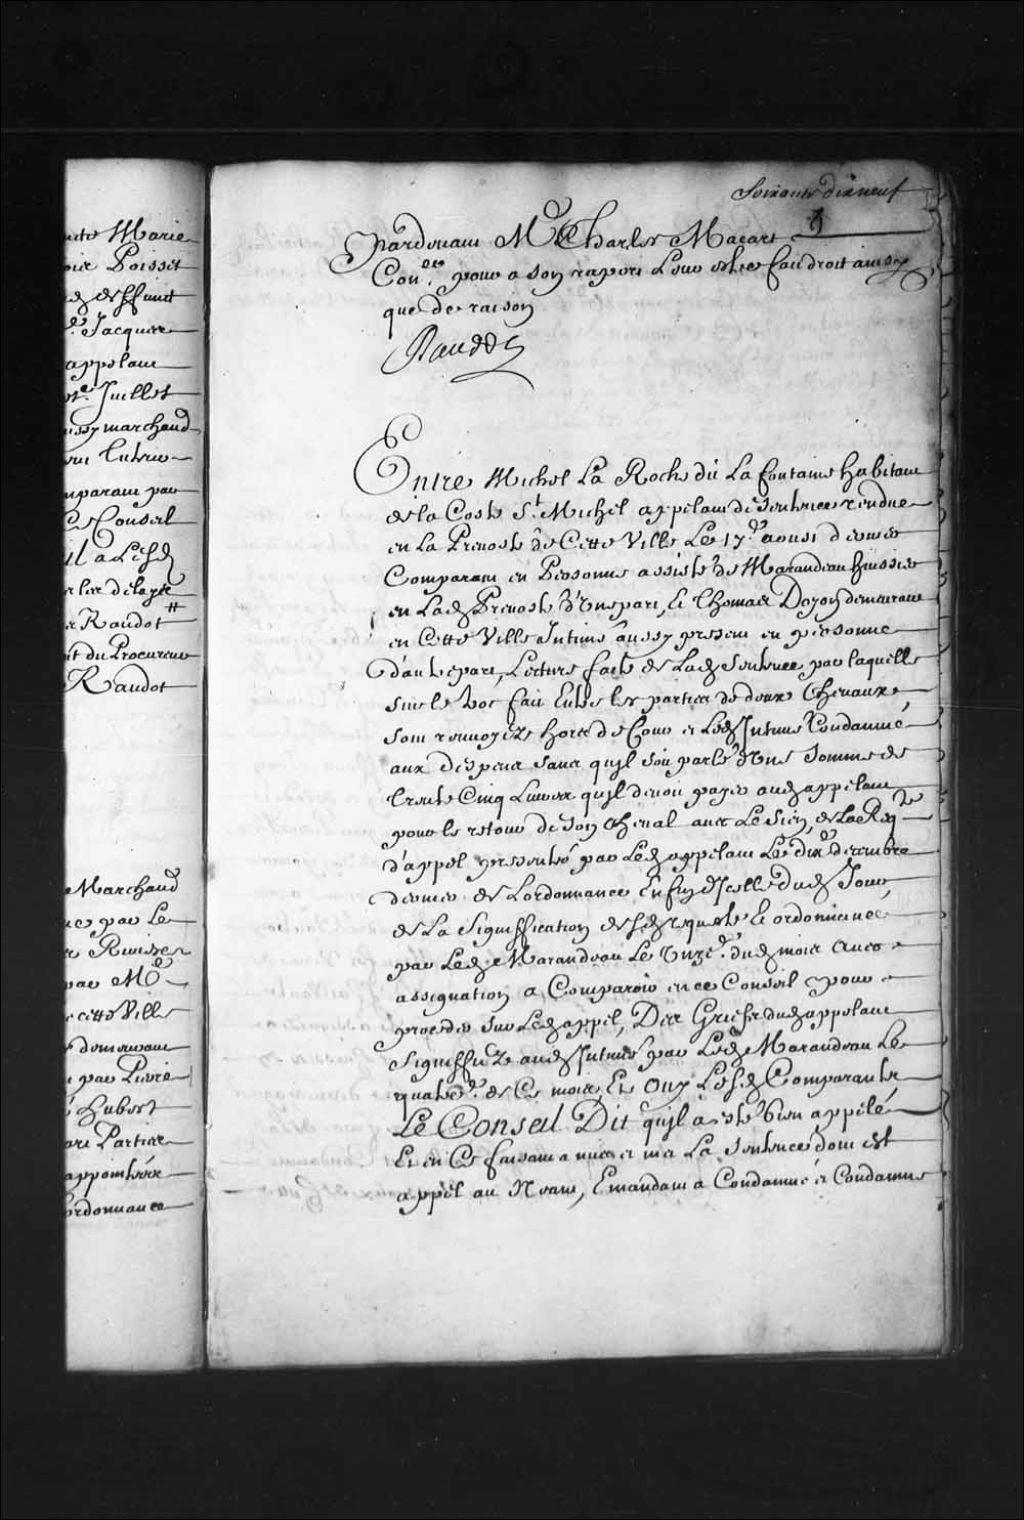 uite Marie
oir Poisset
deffunt
Jacques
appelant
Juillet
ussy marchand
mparant par
Conseil
il a Led
r les delayer
Raudot
it du Procureur
Raudot
Marchand
ue par Le
Ruisse
par Me
cette Ville
demeurant
par Pierre
hubert
Parties
appointées
ordonnance
Soixante dixneuf
Pardevant Me Charles Macart
Conер pour a son raport Leur estre fait droit ainsy
que de raison
Raudot
Entre Michel La Roche dit La fontaine habitant
de la Coste St. Michel appelant de Sentence rendue
en La Prevosté de Cette Ville Le 17e aoust dernier
Comparant en Personne assisté de Marandeau huissier
en Lad Prevosté d'Une part, Et Thomas Doyon demeurant
en Cette Ville Intimé aussy present en personne
d'autre part, Lecture faite de Lad Sentence par laquelle
sur le troc fait Entre les parties de deux Chevaux
sont renvoyez hors de Cour et Led Intimé Condamné
aux despens sans qu'il soit parlé d'Une Somme de
trente Cinq Livres qu'il devoit payer aud appelant
pour le retour de son Cheval avec Le sien, de La Reqte
d'appel presentée par Led appelant Le dixe decembre
dernier de Lordonnance En fin d'Icelle dud Jour,
de La Signiffication desd requeste Et ordonnance
par Led Marandeau Le Unze. dud mois avec
assignation a Comparoir en ce Conseil pour
proceder sur Led appel, Des Griefs dud appelant
Signiffiez aud Intimé par Led Marandeau Le
quatree. de Ce mois, Et Ouy Lesd Comparants
Le Conseil Dit qu'il a esté bien appelé
Et en Ce faisant a mis et met La Sentence dont est
appel au Neant, Emandant a Condamné et Condamne